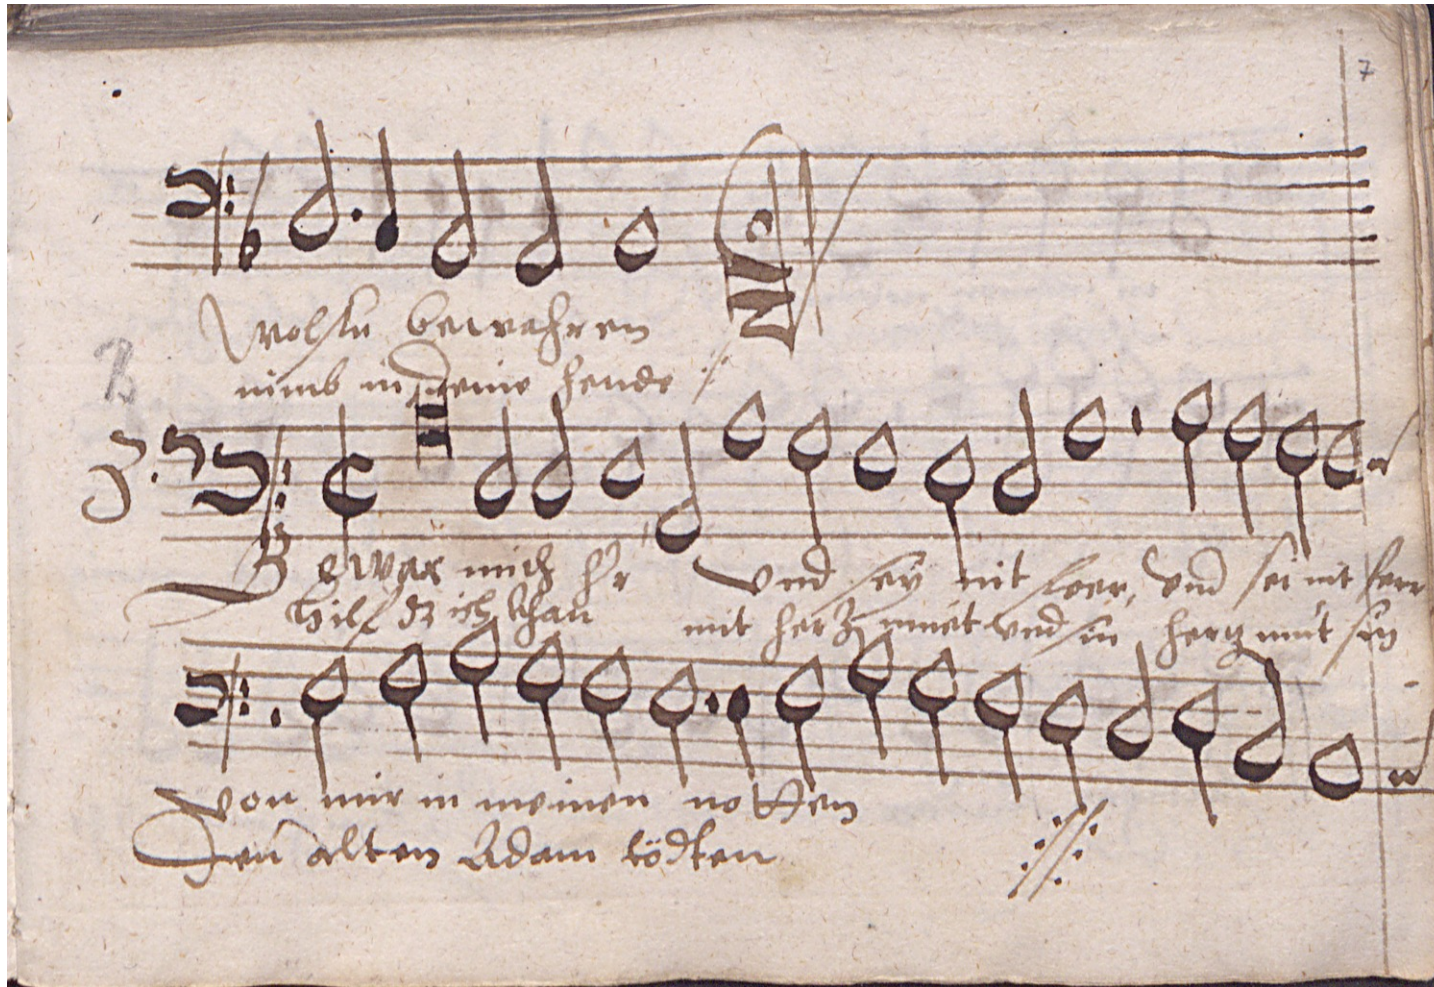 7
wolstu bewahren
nimb in deine hende
3.
Bewar mich hr und sey nit ferr, und sei nit ferr
Hilf dz ich khan mit hertz muet und sin hertz mut sin
von mir in meinen notten
Den alten Adam tödten